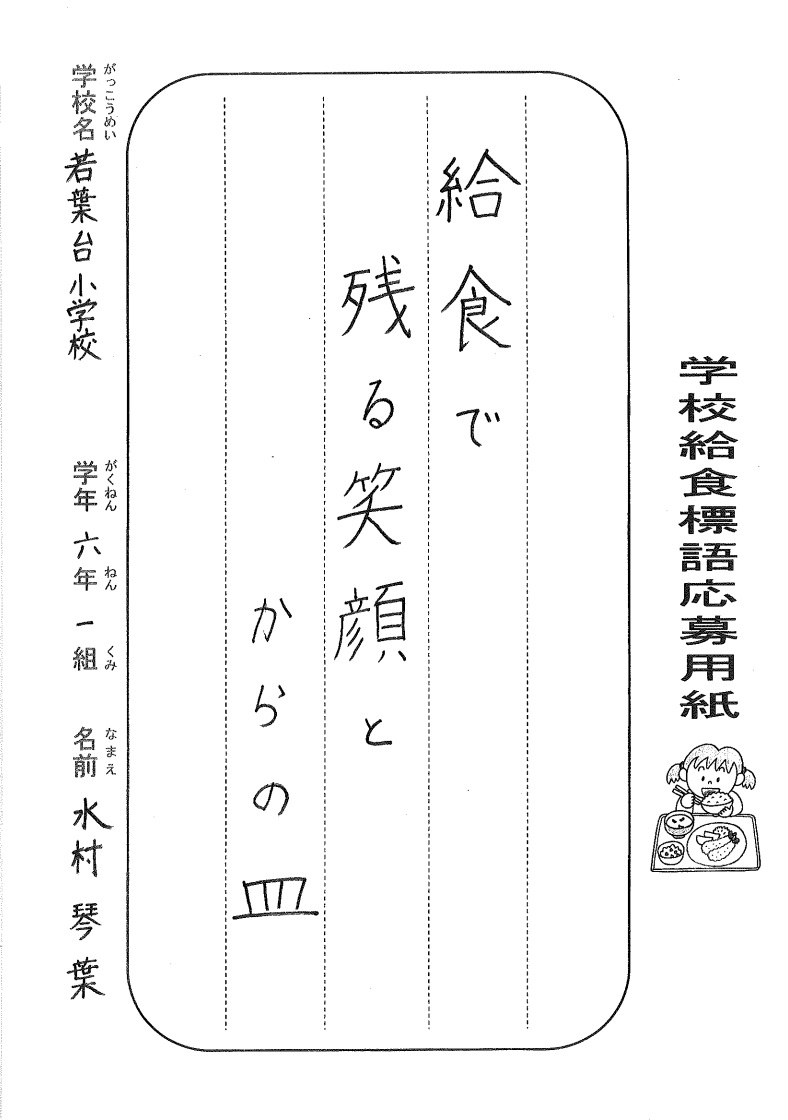 学校給食標語応募用紙
給食で
残る笑顔と
からの皿
学校名 若葉台小学校 学年 六年 一組 名前 水村 琴葉
がっこうめい がくねん ねん くみ なまえ